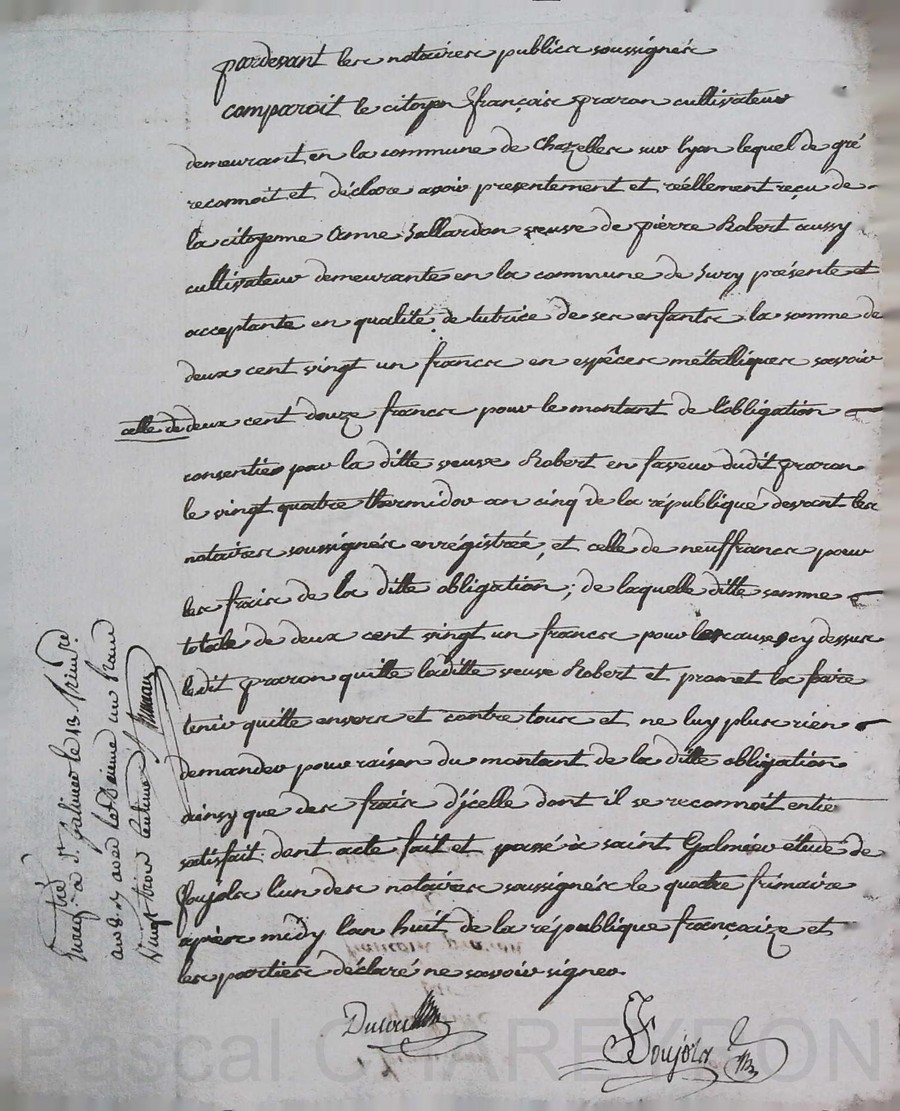 pardevant les notaires publics soussignés
comparoit le citoyen françois praron cultivateur
demeurant en la commune de Chazelles sur lyon lequel de gré
reconnoit et déclare avoir presentement et réellement reçu de
la citoyenne Anne Vallardon veuve de pierre Robert aussy
cultivateur demeurante en la commune de Sury présente et
acceptante en qualité de tutrice de ses enfants la somme de
deux cent vingt un francs en espêces métalliques savoir
celle de deux cent douze francs pour le montant de l'obligation
consentie par la ditte veuve Robert en faveur dudit praron
le vingt quatre thermidor an cinq de la république devant les
notaires soussignés enrégistrée, et celle de neuf francs pour
les frais de la ditte obligation; de laquelle ditte somme
totale de deux cent vingt un francs pour les causes cy dessus
ledit praron quitte laditte veuve Robert et promet la faire
tenir quitte envers et contre tous et ne luy plus rien
demander pour raison du montant de la ditte obligation
ainsy que des frais d'jcelle dont il se reconnoit entie
satisfait. dont acte fait et passé à saint Galmier étude de
Joujols l'un des notaires soussignés le quatre frimaire
après midy l'an huit de la république françaize et
les parties déclaré ne savoir signer.
Joujols
Enregistré à St. Galmier le 13 frim.re
an 8. avec le dixieme un franc
vingt trois centimes
Pascal CHAREYRON